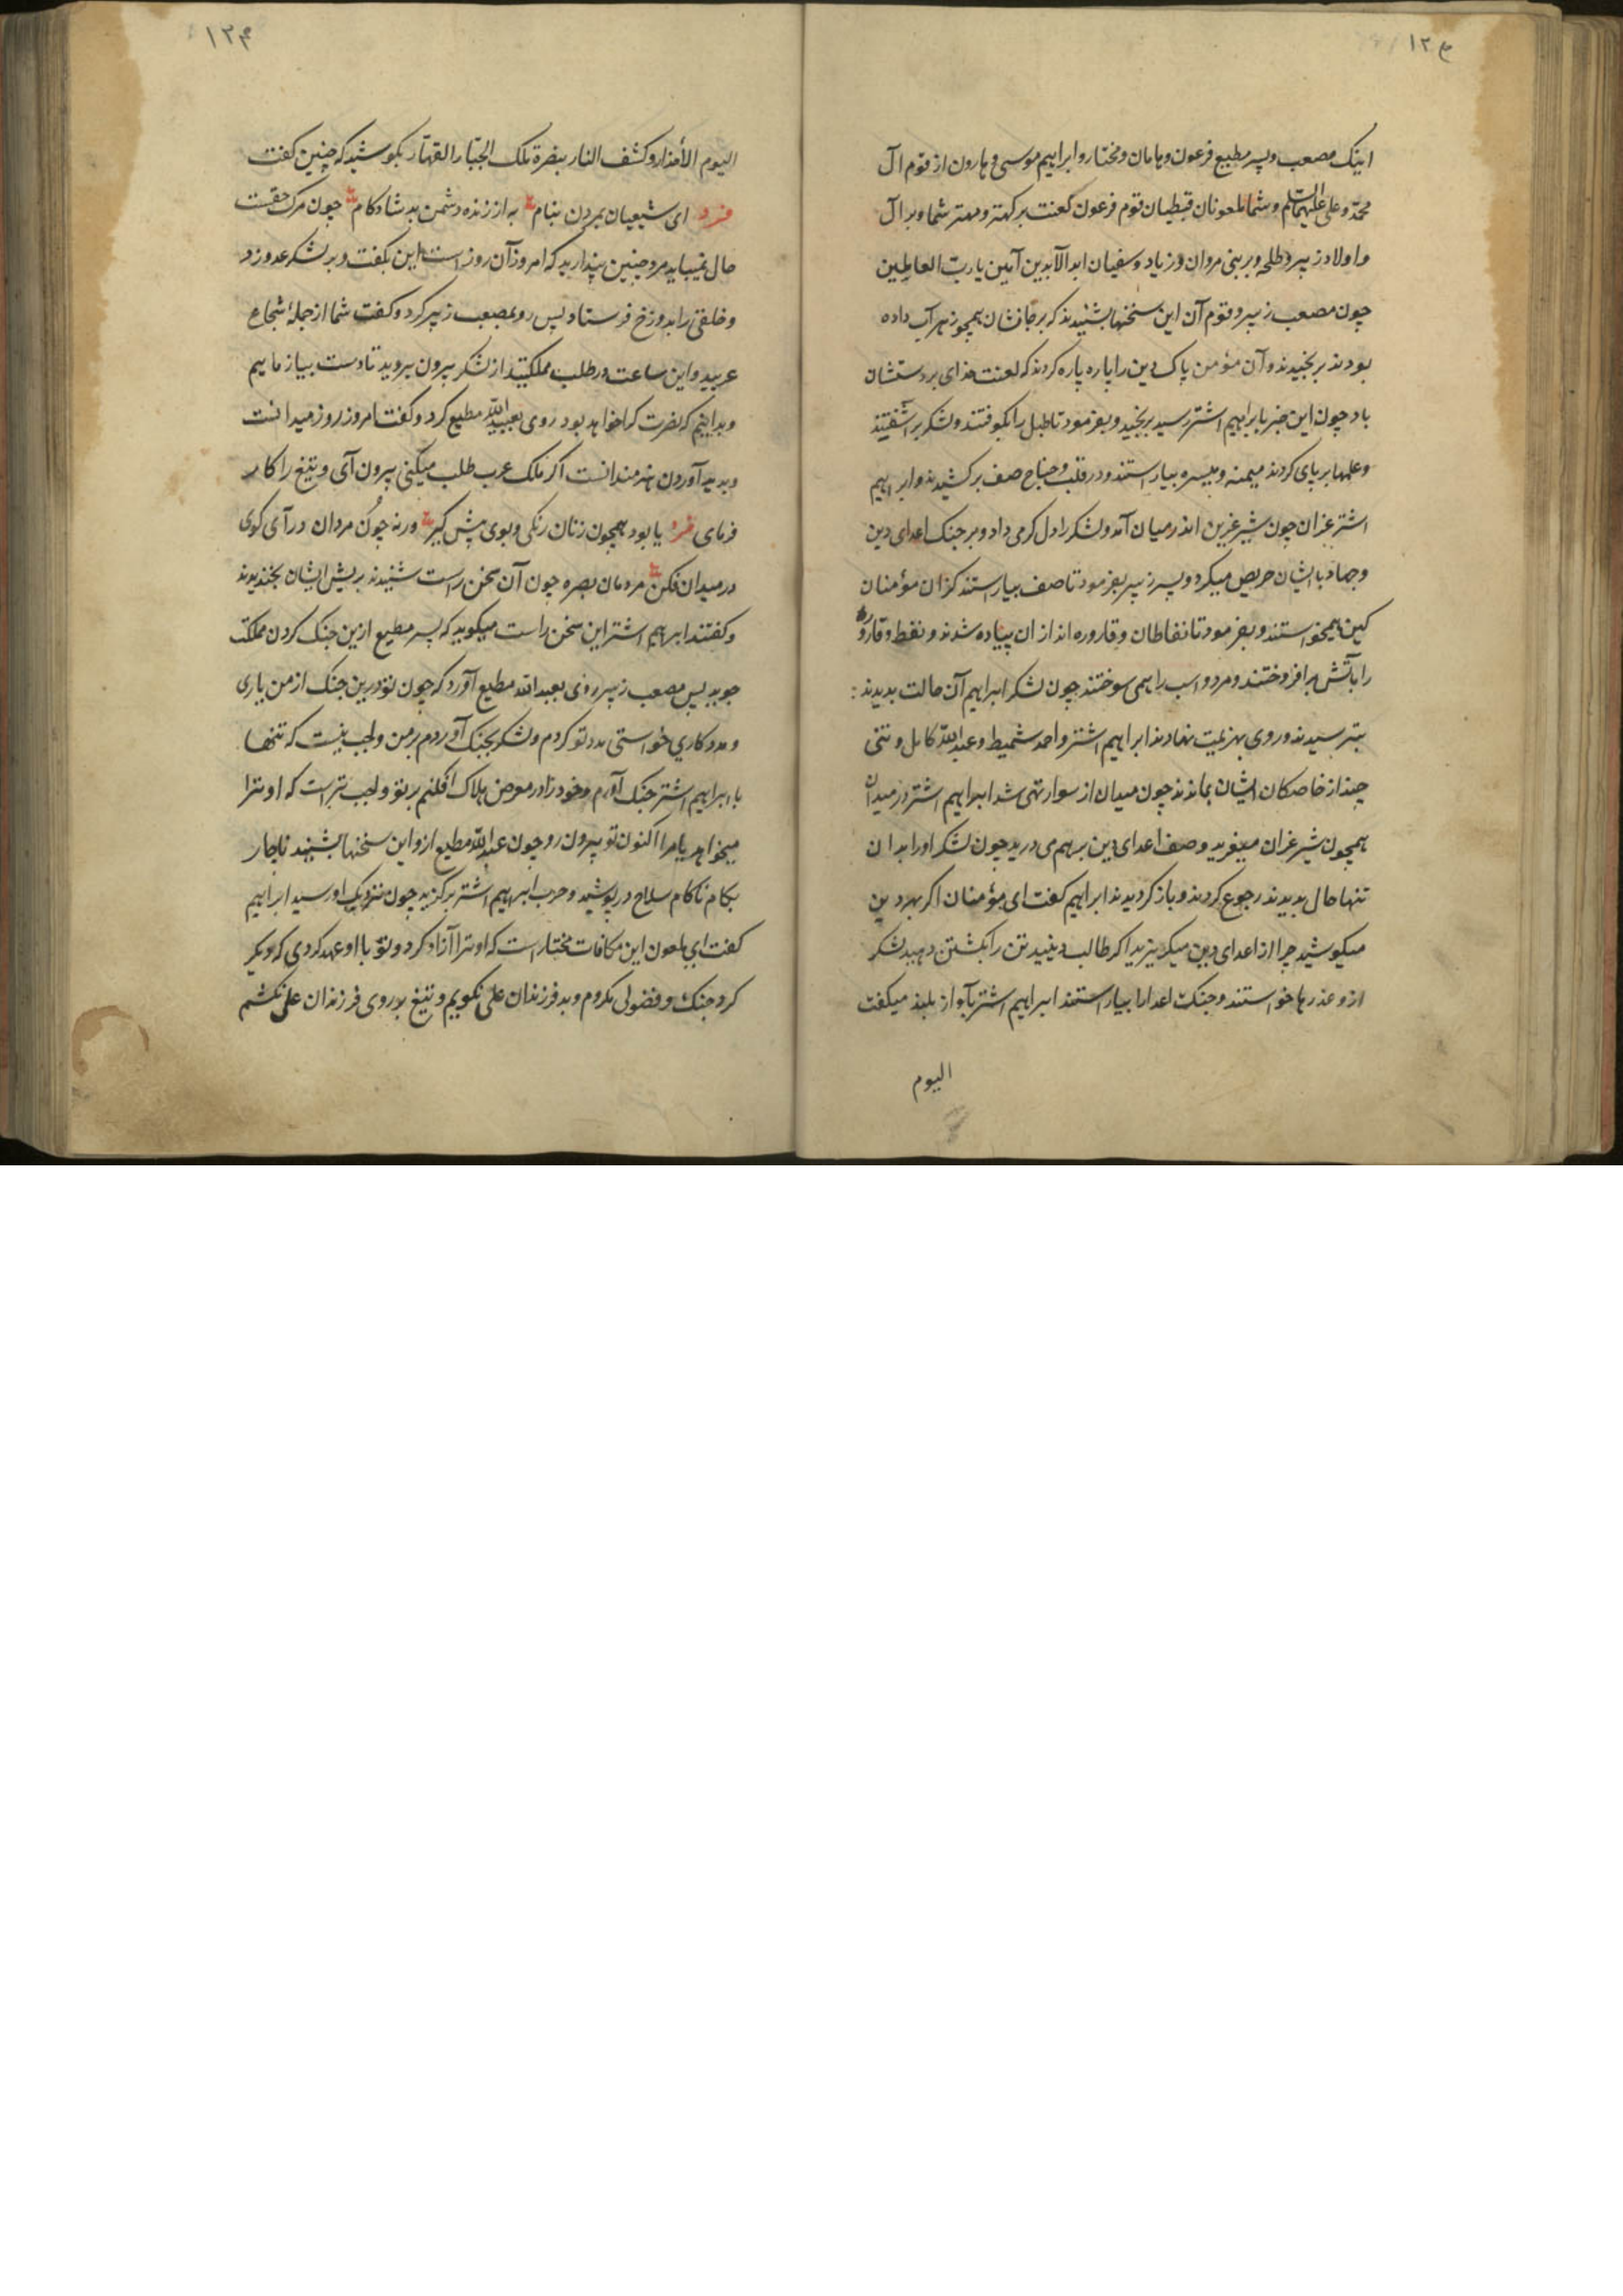 ۱۲۴
اینک مصعب و پسر مطیع فرعون و هامان و مختار و ابراهیم موسی و هارون از قوم آل
محمّد و علی علیهما السلم و شما ملعونان قبطیان قوم فرعون لعنت بر کهتر و مهتر شما و بر آل
و اولاد زبیر و طلحه و بر بنی مروان و زیاد و سفیان ابد الآبدین آمین یا ربّ العالمین
چون مصعب زبیر و قوم آن این سخنها بشنیدند که بر جانشان همچو زهر آب داده
بودند برنجیدند و آن مؤمن پاک دین را پاره پاره کردند که لعنت خدای بر دستشان
باد چون این خبر بابراهیم اشتر رسید برنجید و بفرمود تا طبل را بکوفتند و لشکر بر آشفتند
و علمها بر پای کردند میمنه و میسره بیاراستند و در قلب و جناح صف برکشیدند و ابراهیم
اشتر غران چون شیر غرین اندر میان آمد و لشکر را دل کرمی داد و بر جنک اعدای دین
و جهاد با ایشان حریص میکرد و پسر زبیر بفرمود تا صف بیاراستند کزان مؤمنان
کین همیخواستند و بفرمود تا نفاطان و قاروره اندازان پیاده شدند و نفط و قاروره
را بآتش برافروختند و مرد و اسب را همی سوختند چون لشکر ابراهیم آن حالت بدیدند :
بترسیدند و روی بهزیمت نهادند ابراهیم اشتر و احمد شمیط و عبد الله کامل و تنی
چند از خاصکان ایشان بماندند چون میدان از سوار تهی شد ابراهیم اشتر در میدان
همچون شیر غران میغرید و صف اعدای دین بر هم می درید چون لشکر او را بدان
تنها حال بدیدند رجوع کردند و باز کردیدند ابراهیم کفت ای مؤمنان اکر بهر دین
میکوشید چرا از اعدای دین میکریزید اکر طالب دینید تن را بکشتن دهید لشکر
ازو عذرها خواستند و جنک اعدا را بیاراستند ابراهیم اشتر بآواز بلند میکفت
الیوم
۱۲۴
الیوم الأنذار و کشف النار بنصرة ملک الجبّار القهّار بکوشید که چنین کفت
فرد ای شیعیان بمردن بنام به از زنده دشمن بد شاد کام چون مرک حقست
حال نمیباید مرد چنین پندارید که امروز آن روز است این بکفت و بر لشکر عدو زد
و خلقی را بدوزخ فرستاد پس رو بمصعب زبیر کرد و کفت شما از جملهٔ شجاع
عربید و این ساعت در طلب مملکتید از لشکر بیرون بروید تا دست بیازماییم
و بدانیم که نصرت کرا خواهد بود روی بعبد الله مطیع کرد و کفت امروز روز میدانست
و پدید آوردن هنرمندانست اکر ملک عرب طلب میکنی بیرون آی و تیغ را کار
فرمای فرد یا بود همچون زنان رنکی و بوی پیش کیر ورنه چون مردان در آی کوی
در میدان فکن مردمان بصره چون آن سخن راست شنیدند بریش ایشان بخندیدند
و کفتند ابراهیم اشتر این سخن راست میکوید که پسر مطیع ازین جنک کردن مملکت
جوید پس مصعب زبیر روی بعبد الله مطیع آورد که چون تو درین جنک از من یاری
و مددکاری خواستی مدد تو کردم و لشکر بجنک آوردم بر من واجب نیست که تنها
با ابراهیم اشتر جنک آورم و خود را در معرض هلاک افکنم بر تو واجب تر است که او ترا
میخواهد یا مرا اکنون تو بیرون رو چون عبد الله مطیع ازو این سخنها بشنید ناچار
بکام ناکام سلاح در پوشید و حرب ابراهیم اشتر برکزید چون نزدیک او رسید ابراهیم
کفت ای ملعون این مکافات مختار است که او ترا آزاد کرد و تو با او عهد کردی که دیکر
کرد جنک و فضولی نکردم و بد فرزندان علی نکویم و تیغ بر روی فرزندان علی نکشم